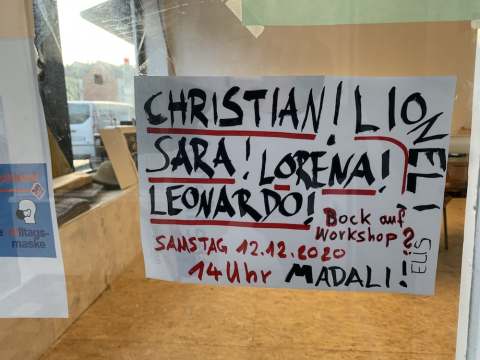 CHRISTIAN! LIONEL!
SARA! LORENA!
LEONARDO!
Bock auf
Workshop?
SAMSTAG 12.12.2020
14 Uhr MADALI!
ELIS
lltags-
maske